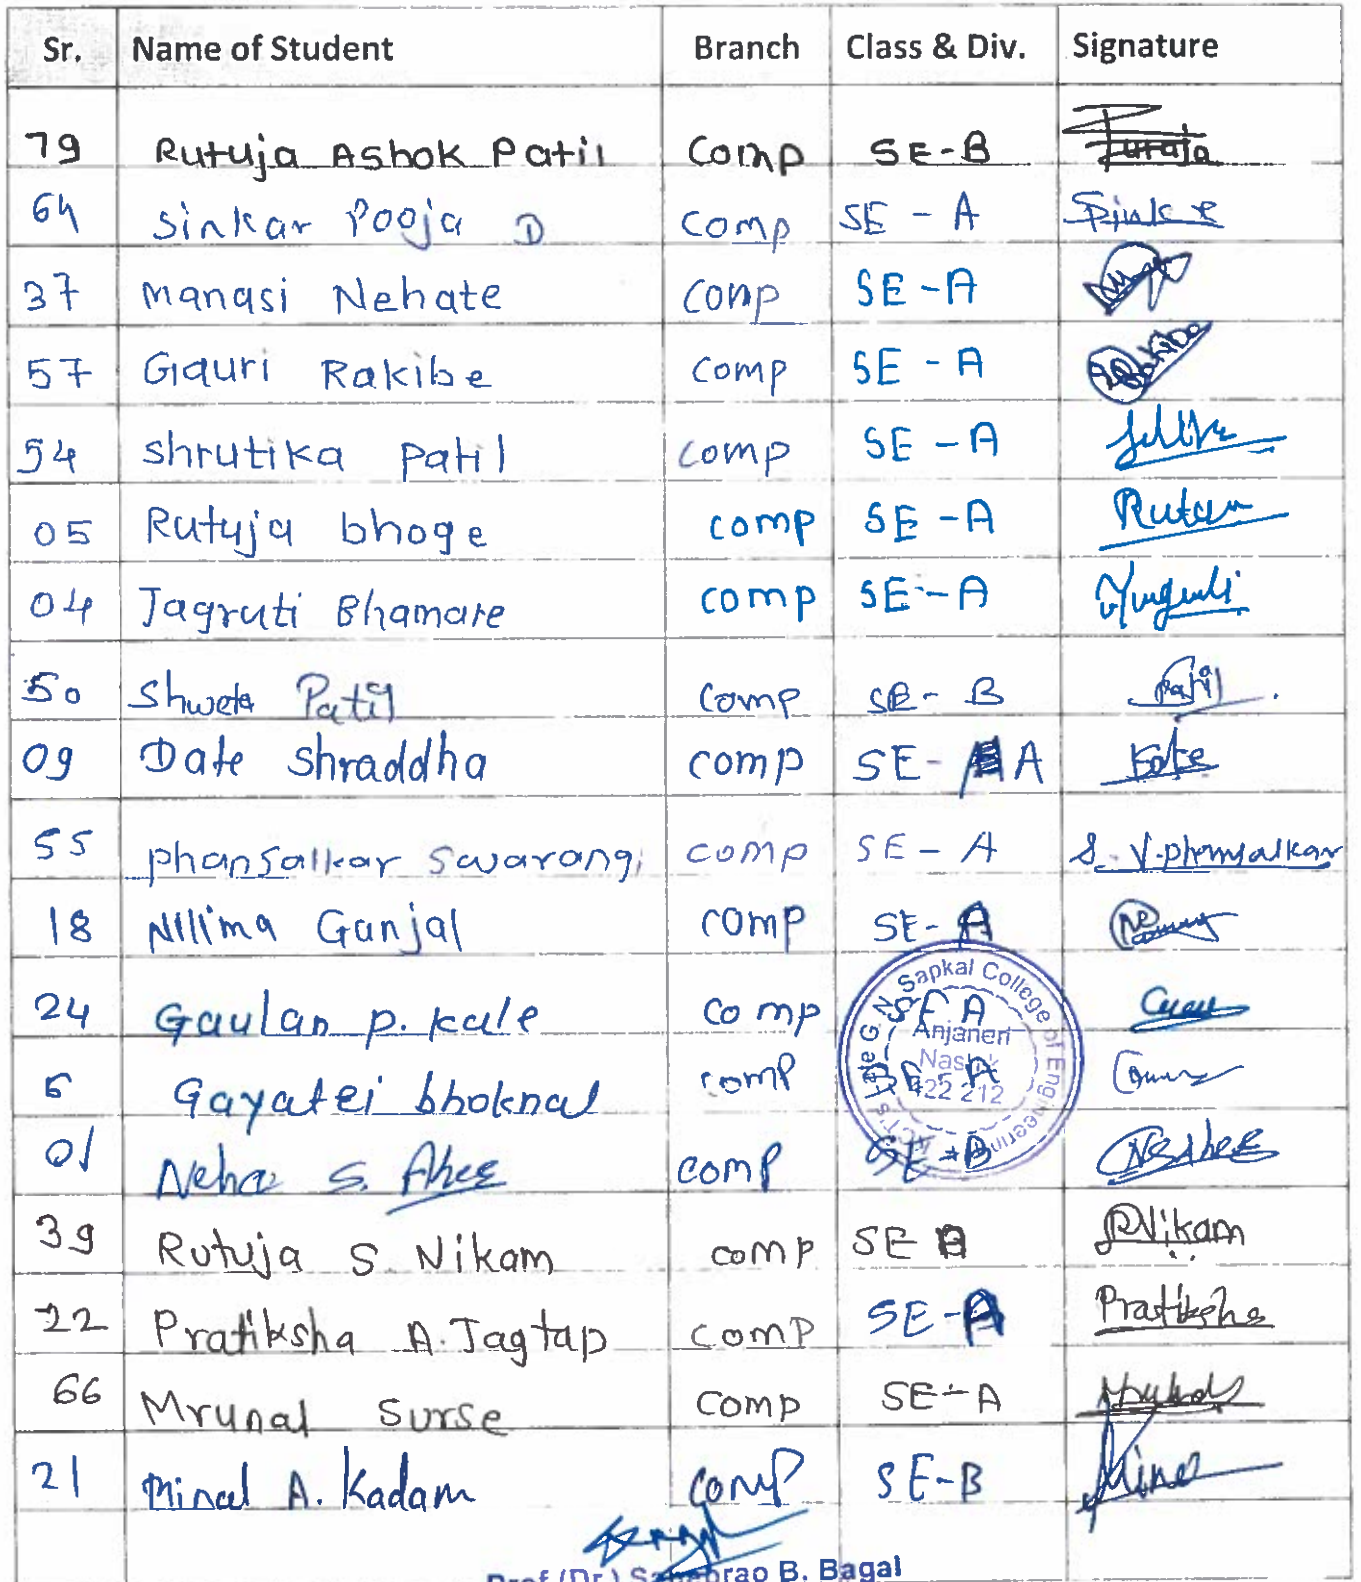 Sr. Name of Student Branch Class & Div. Signature
79 Rutuja Ashok Patil Comp SE-B
64 Sinkar Pooja D Comp SE - A
37 Manasi Nehate Comp SE - A
57 Gauri Rakibe Comp SE - A
54 Shrutika Patil Comp SE - A
05 Rutuja bhoge comp SE - A
04 Jagruti Bhamare comp SE - A
50 Shweta Patil Comp SE - B Patil
09 Date Shraddha comp SE - A
55 Phansalkar Swarangi comp SE - A S. V. Phansalkar
18 Nilima Ganjal comp SE - A
24 Gaulan P. Kale comp SE A
5 Gayatri bhoknal comp SE - A
01 Neha S. Aher comp SE - B NSAher
39 Rutuja S. Nikam comp SE B RNikam
22 Pratiksha A. Jagtap comp SE-A Pratiksha
66 Mrunal Surse Comp SE - A
21 Minal A. Kadam comp SE-B Minal
Late G. N. Sapkal College of Engineering
Anjaneri
Nashik
422 212
Prof (Dr.) Sahebrao B. Bagal